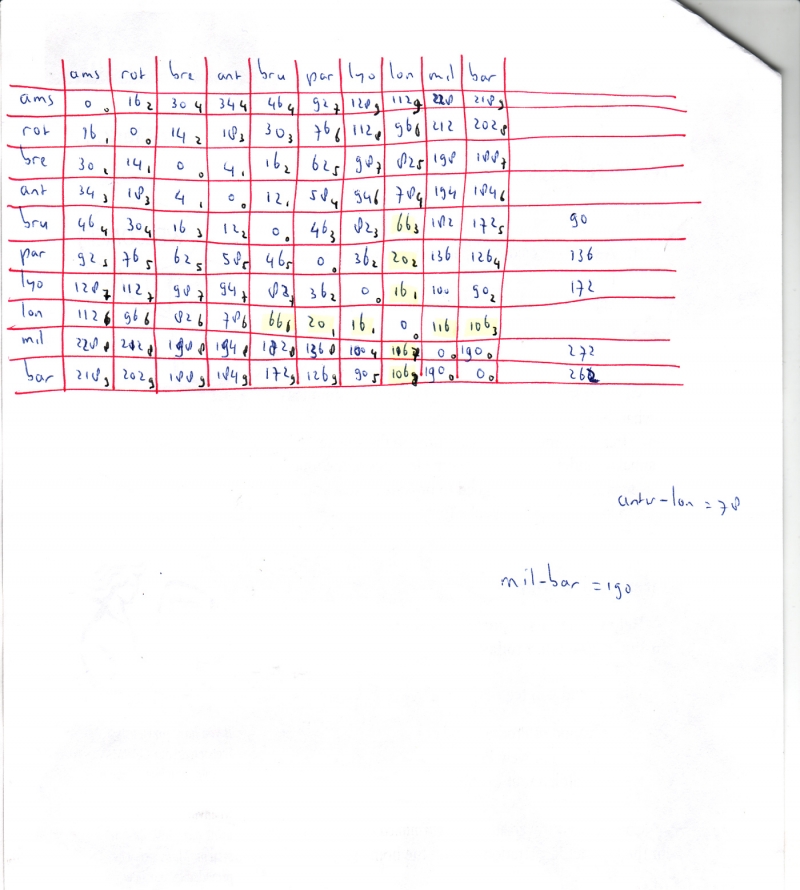 ams rot bre ant bru par lyo lon mil bar
ams 0 0 16 2 30 4 34 4 46 4 92 7 128 9 112 9 228 218 9
rot 16 1 0 0 14 2 18 3 30 3 76 6 112 8 96 6 212 202 8
bre 30 2 14 1 0 0 4 1 16 2 62 5 98 7 82 5 198 188 7
ant 34 3 18 3 4 1 0 0 12 1 58 4 94 6 78 4 194 184 6
bru 46 4 30 4 16 3 12 2 0 0 46 3 82 3 66 3 182 172 5 90
par 92 5 76 5 62 5 58 5 46 5 0 0 36 2 20 2 136 126 4 136
lyo 128 7 112 7 98 7 94 7 82 7 36 2 0 0 16 1 100 90 2 172
lon 112 6 96 6 82 6 78 6 66 6 20 1 16 1 0 0 116 106 3
mil 228 8 212 8 198 8 194 8 182 8 136 8 100 4 0 0 190 0 272
bar 218 9 202 9 188 9 184 9 172 9 126 9 90 5 106 190 0 0 0 262
antw-lon = 78
mil-bar = 190